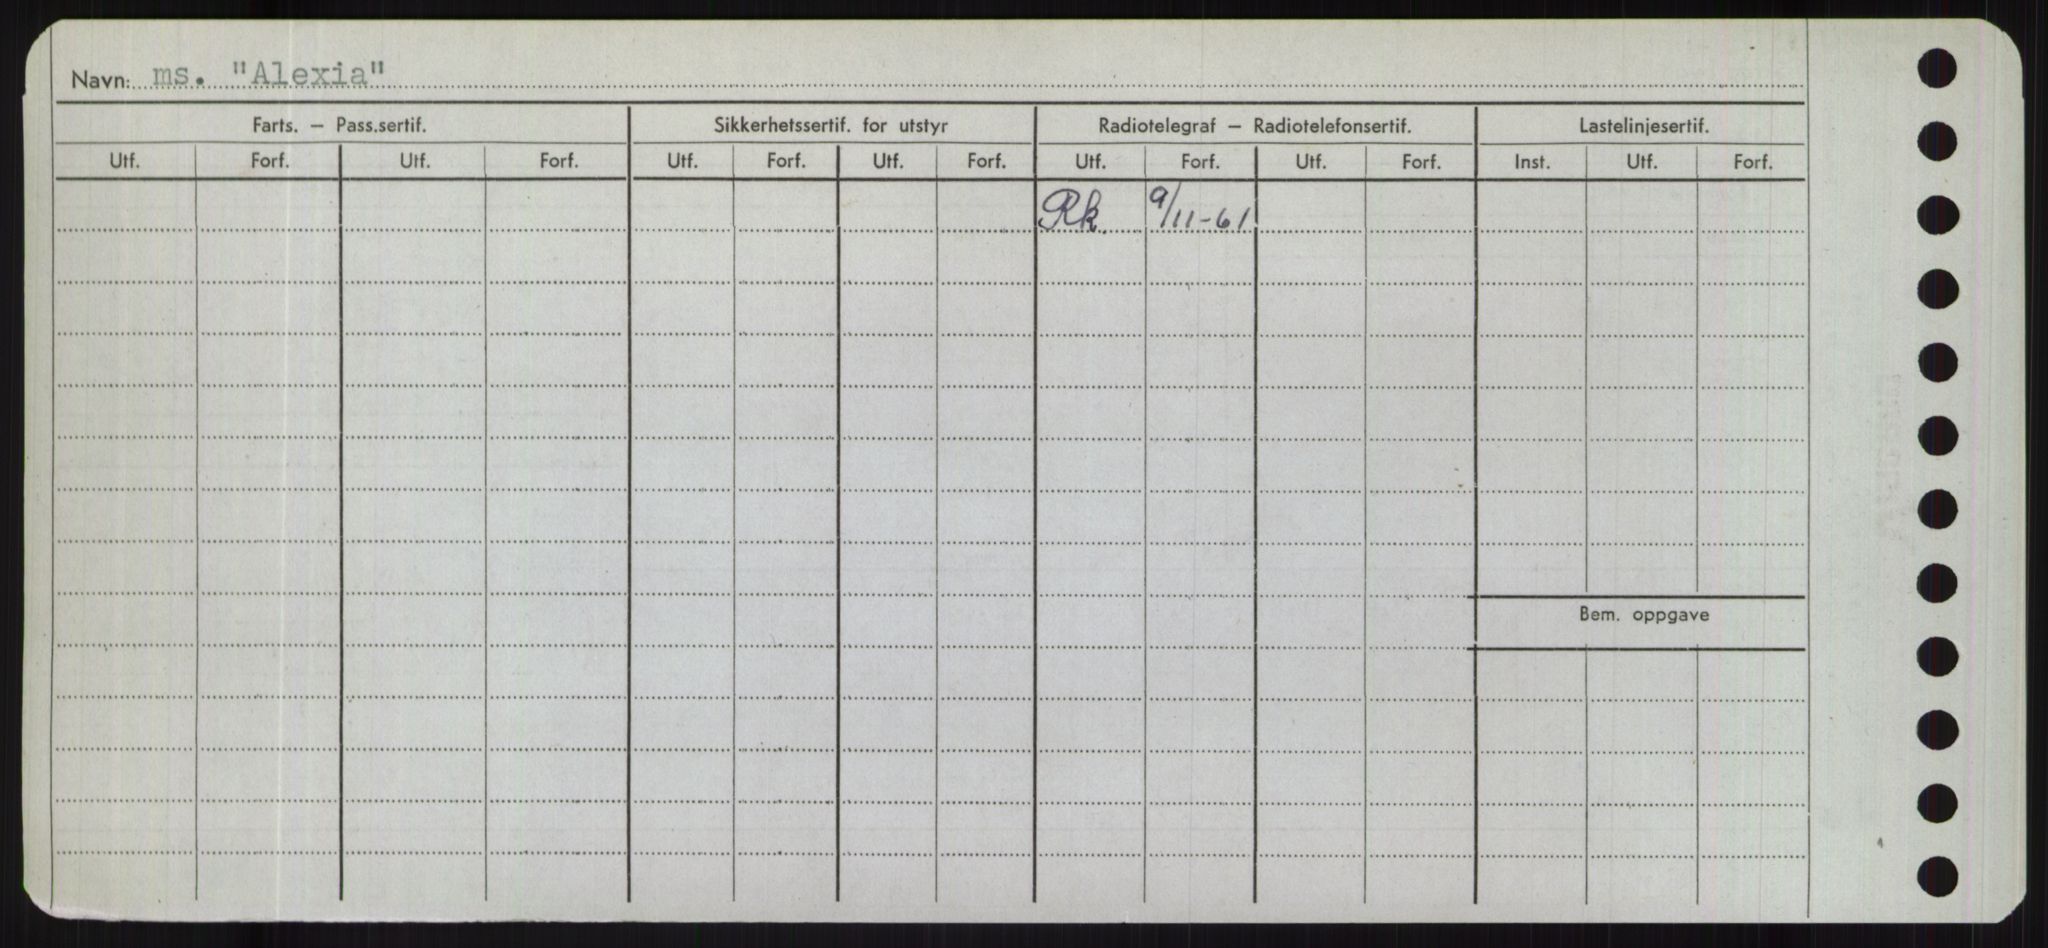 Navn: ms. "Alexia"
Farts. – Pass.sertif. Sikkerhetssertif. for utstyr Radiotelegraf – Radiotelefonsertif. Lastelinjesertif.
Utf. Forf. Utf. Forf. Utf. Forf. Utf. Forf. Utf. Forf. Utf. Forf. Inst. Utf. Forf.
Rk 9/11-61
Bem. oppgave